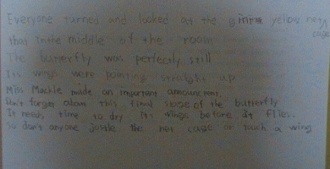 Everyone turned and looked at the yellow net
cage
that in the middle of the room
The butterfly was perfectly still
Its wings were pointing straight up
Miss Mackle made an important announcement.
Don't forget about this final stage of the butterfly
It needs time to dry its wings before it flies.
So don't anyone jiggle the net cage or touch a wing